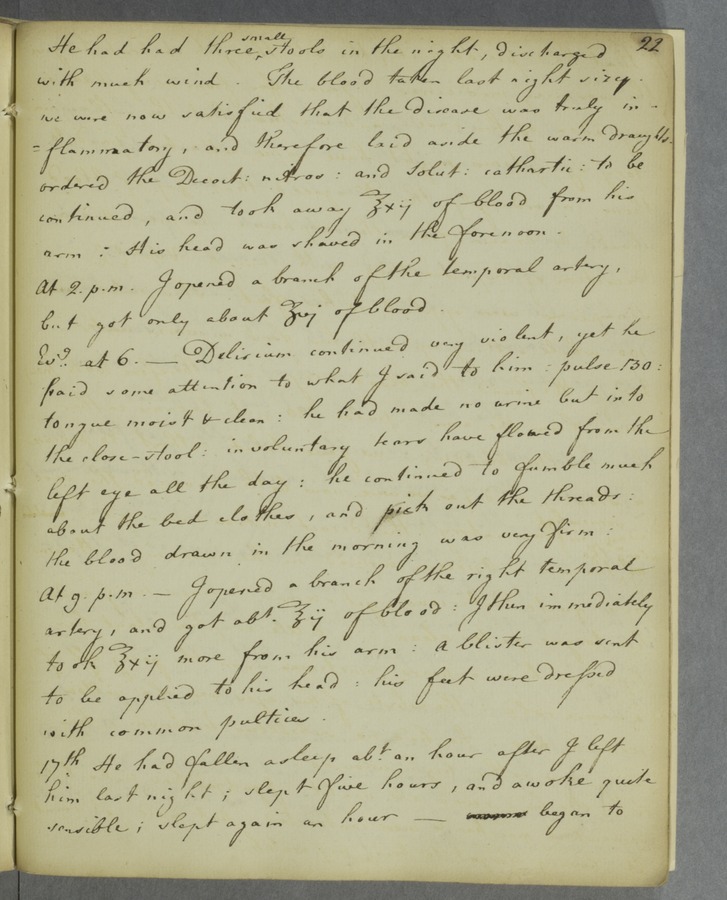 22
He had had three small stools in the night, discharged
with much wind. The blood taken last night sizy.
we were now satisfied that the disease was truly in-
=flammatory, and therefore laid aside the warm draughts.
ordered the Decoct: nitros: and Solut: cathartic: to be
continued, and took away ℥xij of blood from his
arm: His head was shaved in the forenoon.
At 2. p.m. I opened a branch of the temporal artery,
but got only about ℥vj of blood.
Evg. at 6. — Delirium continued very violent, yet he
paid some attention to what I said to him: pulse 130:
tongue moist & clean: he had made no urine but into
the close-stool: involuntary tears have flowed from the
left eye all the day: he continued to fumble much
about the bed clothes, and pick out the threads:
the blood drawn in the morning was very firm:
At 9. p.m. — I opened a branch of the right temporal
artery, and got abt. ℥ij of blood: I then immediately
took ℥xij more from his arm: a blister was sent
to be applied to his head: his feet were dressed
with common pultices.
17th He had fallen asleep abt an hour after I left
him last night; slept five hours, and awoke quite
sensible; slept again an hour — began to